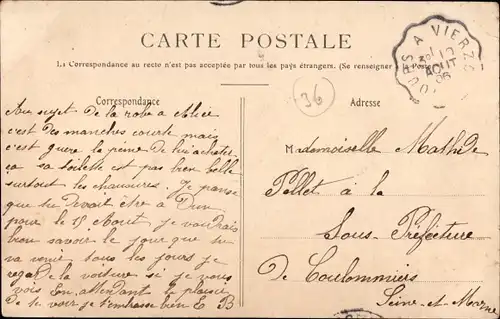 CARTE POSTALE
La Correspondance au recto n'est pas acceptée par tous les pays étrangers. (Se renseigner à la Poste)
TOURS A VIERZON
AOUT
06
36
Correspondance
Au sujet de la robe a Alice
c'est des manches courte mais
c'est guere la peine de lui acheter
ça sa toilette est pas bien belle
surtout les chausures. Je pense
que tu devait être a Dun
pour le 15 Aout je voudrais
bien savoir le jour que tu
va venir tous les jours je
regarde la voiture si je vous
vois. En attendant le plaisir
de te voir je t'embrasse bien E B
Adresse
Mademoiselle Mathilde
Pellet à la
Sous-Préfecture
De Coulommiers
Seine-et-Marne